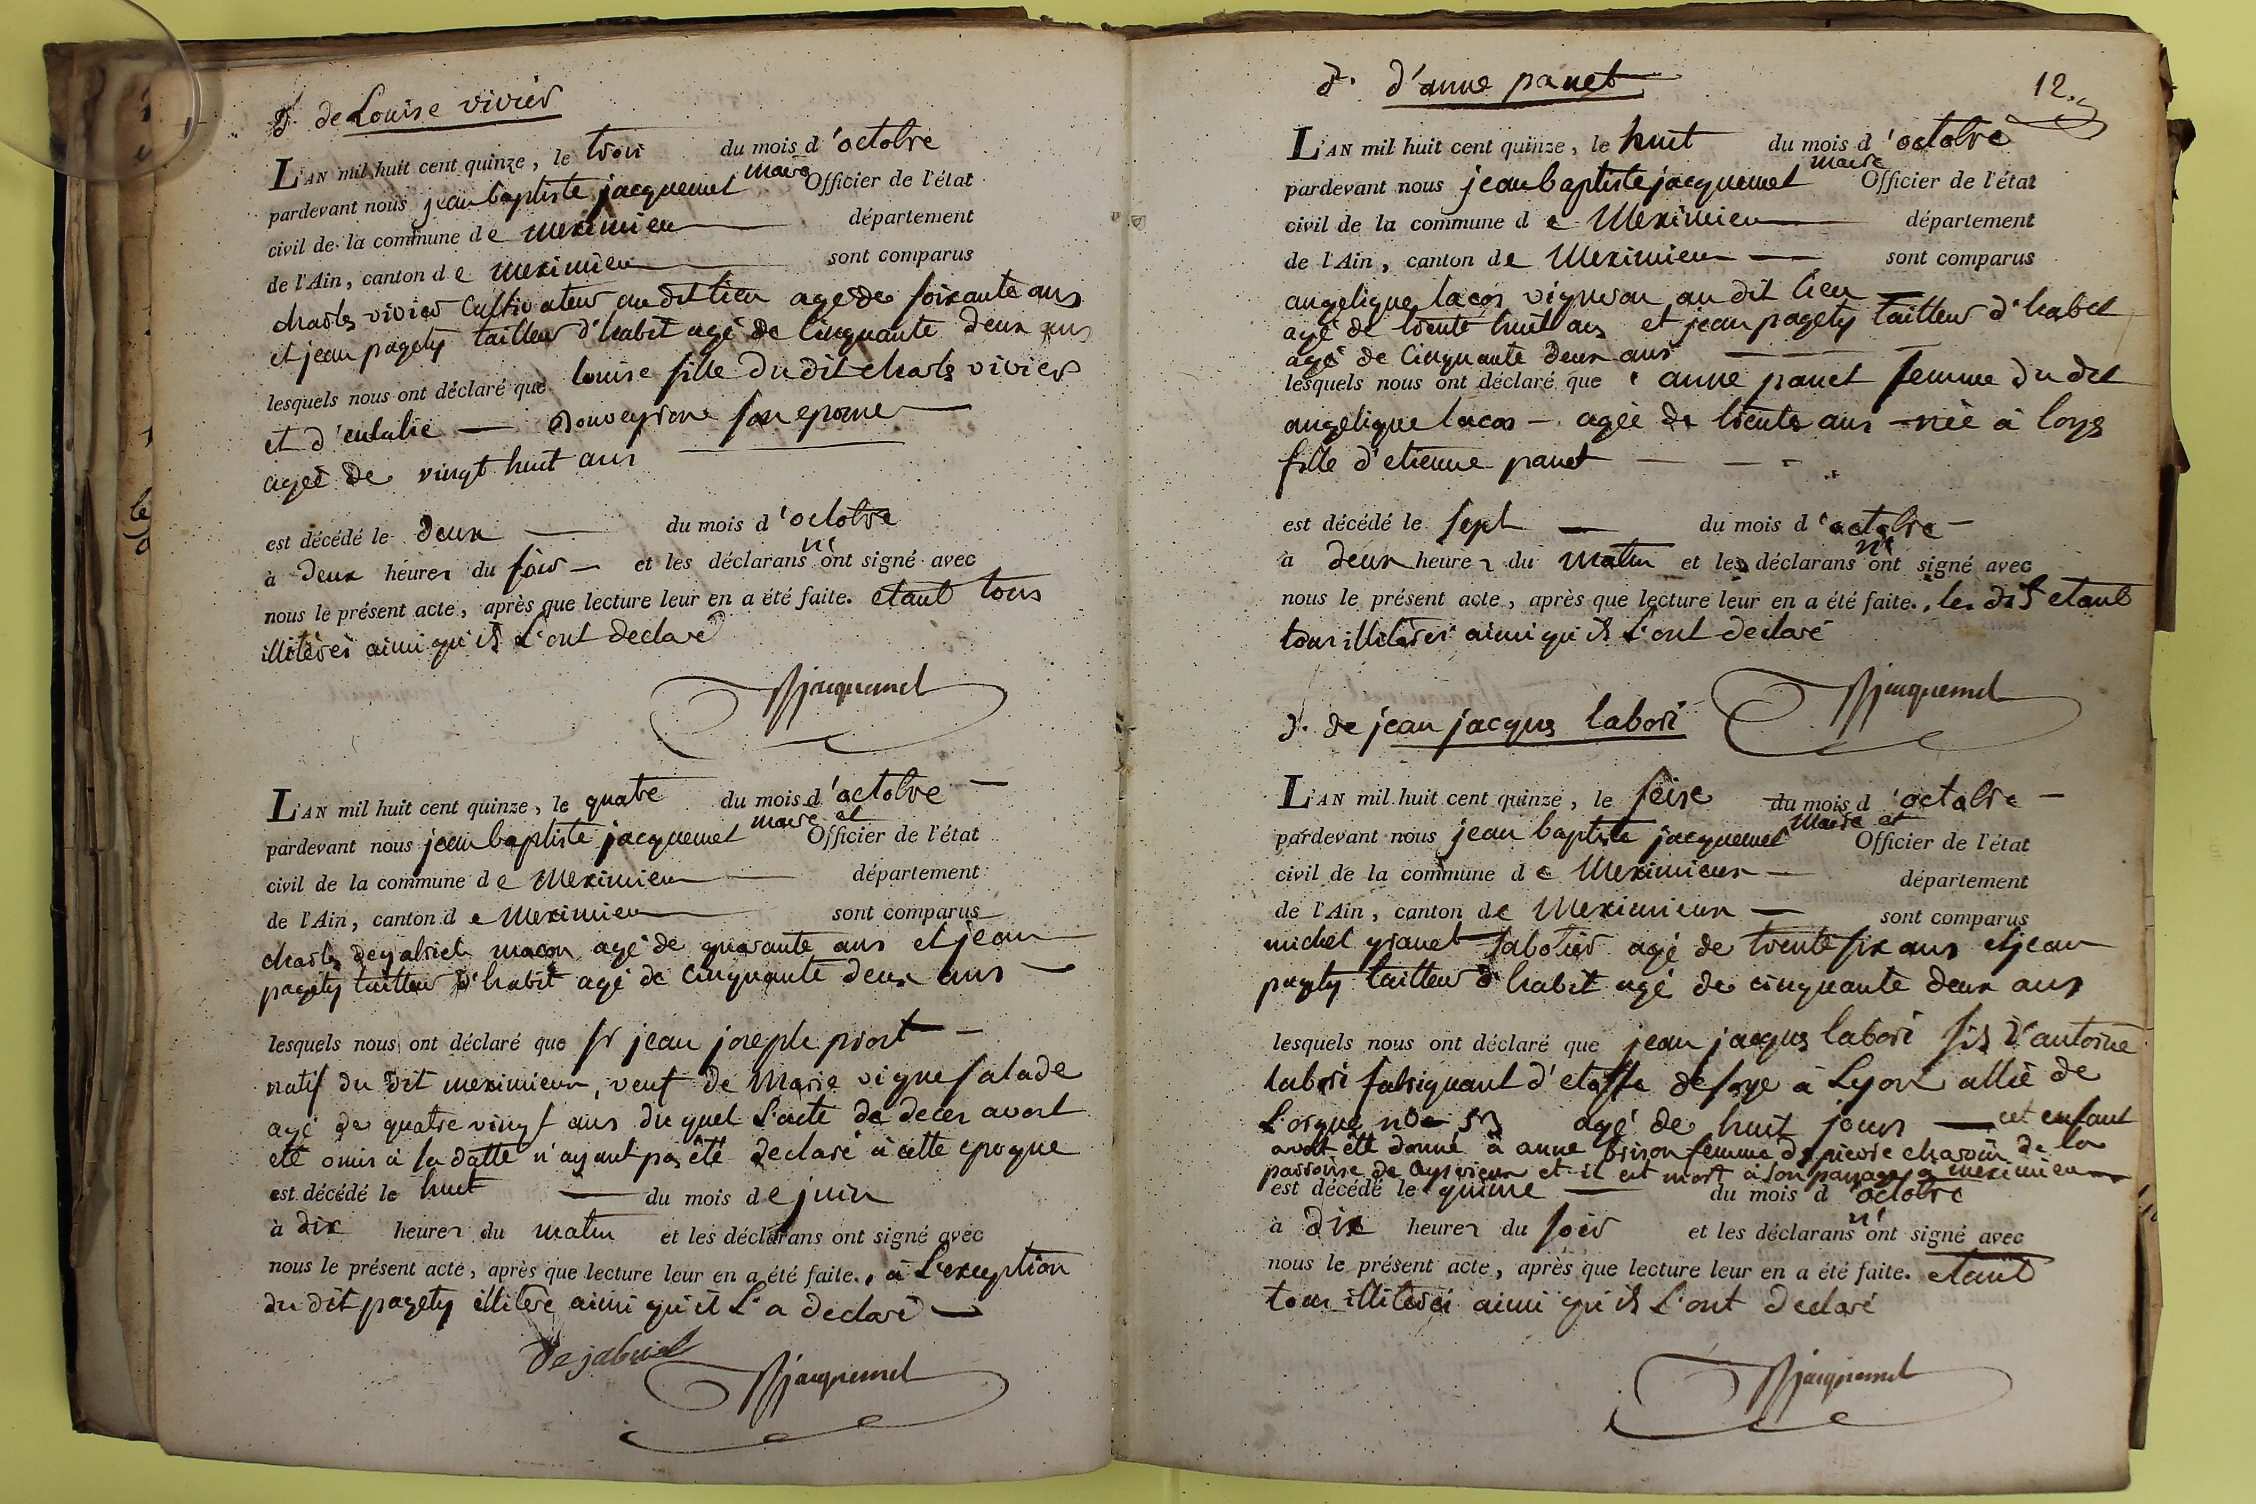 D. de Louise vivier
L'AN mil huit cent quinze, le trois du mois d'octobre
pardevant nous jean baptiste jacquemet maire Officier de l'état
civil de la commune de meximieu département
de l'Ain, canton de meximieu sont comparus
charles vivier Cultivateur au dit lieu agé de soixante ans
et jean pagety tailleur d'habit agé de Cinquante deux ans
lesquels nous ont déclaré que louise fille du dit charles vivier
et d'eulalie — Donveyrone son epouse
ageé de vingt huit ans
est décédé le deux du mois d'octobre
à deux heures du soir — et les déclarans n'ont signé avec
nous le présent acte, après que lecture leur en a été faite. etant tous
illiterés ainsi qu'ils L'ont declaré
Jacquemet
L'AN mil huit cent quinze, le quatre du mois d'octobre —
pardevant nous jean baptiste jacquemet maire et Officier de l'état
civil de la commune de Meximieu département
de l'Ain, canton de Meximieu sont comparus
charles dejabriel maçon agé de quarante ans et jean
pagety tailleur d'habit agé de cinquante deux ans —
lesquels nous ont déclaré que sr jean joseph piost —
natif du dit meximieux, veuf de Marie vigne salade
agé de quatre vingt ans du quel L'acte de deces avoit
eté omis à sa datte n'ayant pas êté declaré à cette epoque
est décédé le huit du mois de juin
à dix heures du matin et les déclarans ont signé avec
nous le présent acte, après que lecture leur en a été faite. à L'exception
du dit pagety illitere ainsi qu'il L'a declaré —
Dejabriel
Jacquemet
D. d'anne panet
12.
L'AN mil huit cent quinze, le huit du mois d'octobre
pardevant nous jean baptiste jacquemet maire Officier de l'état
civil de la commune de Meximieu département
de l'Ain, canton de Meximieu — sont comparus
angelique lacos vigneron au dit lieu —
agé de trente huit ans et jean pagety tailleur d'habit
agé de Cinquante deux ans
lesquels nous ont déclaré que anne panet femme du dit
angelique lacos — ageé de trente ans — née à loys
fille d'etienne panet
est décédé le sept — du mois d'octobre —
à deux heures du matin et les déclarans n'ont signé avec
nous le présent acte, après que lecture leur en a été faite. les dits etant
tous illiterés ainsi qu'ils L'ont declaré
Jacquemet
D. de jean jacques labori
L'AN mil huit cent quinze, le seise du mois d'octobre —
pardevant nous jean baptiste jacquemet Maire et Officier de l'état
civil de la commune de Meximieux — département
de l'Ain, canton de Meximieux — sont comparus
michel granet sabotier agé de trente six ans et jean
pagety tailleur d'habit agé de cinquante deux ans
lesquels nous ont déclaré que jean jacques labori fils d'antoine
labori fabriquant d'etoffe de soye à Lyon allié de
L'orgue no 53 agé de huit jours — cet enfant
avoit êté donné à anne brison femme de pierre charoin de la
parroisse de et il est mort à son passage à meximieux
est décédé le quinse — du mois d'octobre
à dix heures du soir et les déclarans n'ont signé avec
nous le présent acte, après que lecture leur en a été faite. etant
tous illiterés ainsi qu'ils L'ont declaré
Jacquemet